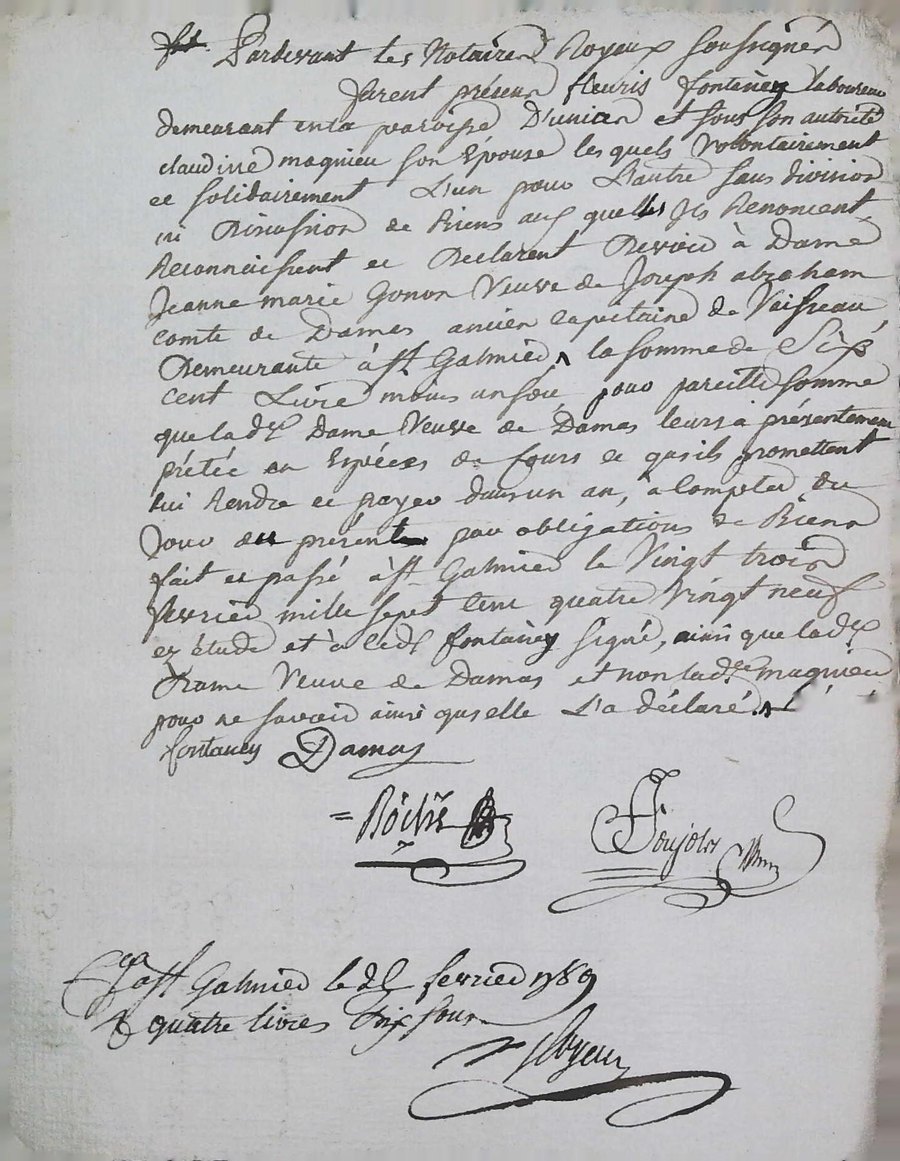 Pardevant les Notaires Royaux soussignés
furent présens fleuris fontaney laboureur
demeurant en la paroisse D'unias et sous son autorité
claudine magnieu son Epouse les quels volontairement
et solidairement L'un pour L'autre sans division
ni Discussion de Biens aux quelles Ils Renoncent
Reconnaissent et Declarent Devoir à Dame
Jeanne marie Gonon Veuve de Joseph abraham
comte de Damas ancien capitaine de Vaisseau
Demeurante à st Galmier la somme de Six
cent Livre moins un sou, pour pareille somme
que lad.e Dame Veuve de Damas leurs a présentement
prétée en Espéces de Cours et qu'ils promettent
lui Rendre et payer dans un an, à Compter du
Jour du présent par obligations de Biens
fait et passé à st Galmier le Vingt trois
fevrier mille sept cent quatre vingt neuf
ez étude et a led. fontaney signé, ainsi que lad.e
Dame Veuve de Damas et non lad.e magnieu
pour ne savoir ainsi qu'elle L'a déclaré.
fontaney Damas
st Galmier le fevrier 1789
quatre livres Dix sous